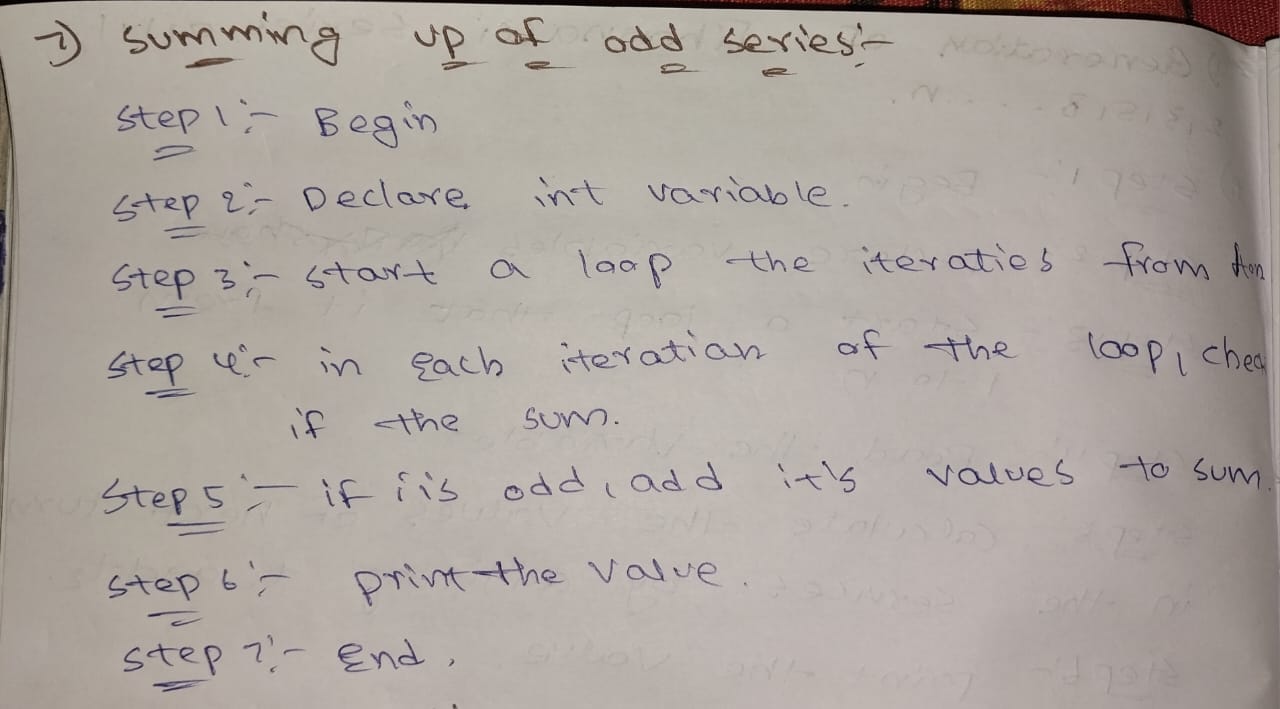 7) summing up of odd series:-
step 1:- Begin
step 2:- Declare int variable.
step 3:- start a loop the iteraties from
step 4:- in each iteration of the loop, chec
if the sum.
step 5:- if i is odd, add it's values to sum.
step 6:- print the value.
step 7:- End.